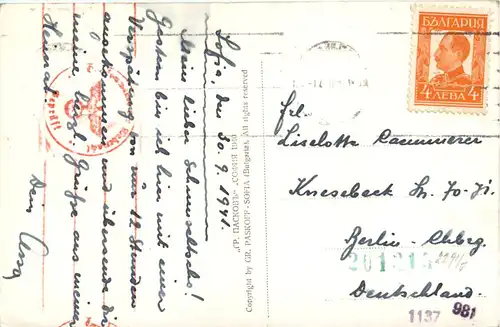 Sofia, den 30. 9. 1941.
Mein lieber
Gestern bin ich hier mit einer
Verspätung von nur 12 Stunden
angekommen und übersende dir
meine herzl. Grüße aus meiner
Heimat.
Dein
Geprüft
"ГР. ПАСКОВЪ" СОФИЯ 1940
Copyright by GR. PASKOFF - SOFIA (Bulgaria). All rights reserved
БЪЛГАРИЯ
4 4
ЛЕВА
Frl.
Liselotte Cammerer
Knesebeck Str. 70-71
Berlin-Chbg.
201213
Deutschland.
1137 981